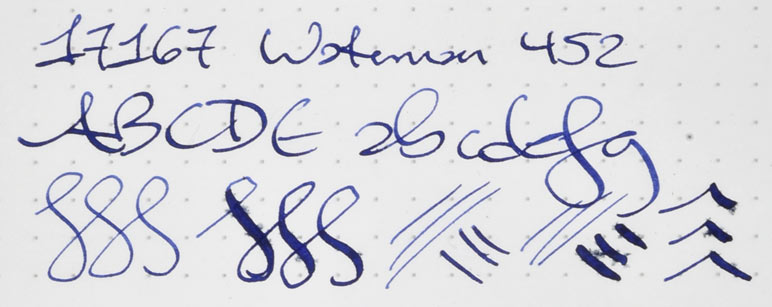 17167 Waterman 452
ABCDE abcdefg